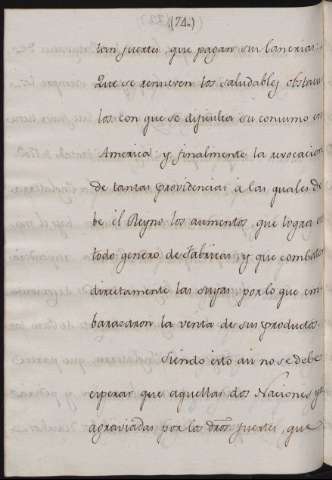 (74.)
tan fuertes, que pagan sus lanerias.
Que se renueven los saludables obstacu
los con que se dificulta su consumo en
America y finalmente la revocacion
de tantas providencias à las quales de
be èl Reyno los aumentos, que logra en
todo genero de Fabricas, y que combaten
directamente las suyas por lo que em
barazaron la venta de sus productos.
Siendo èsto asi no se debe
esperar que aquellas dos Naciones ya
agraviadas por los dros. fuertes, que